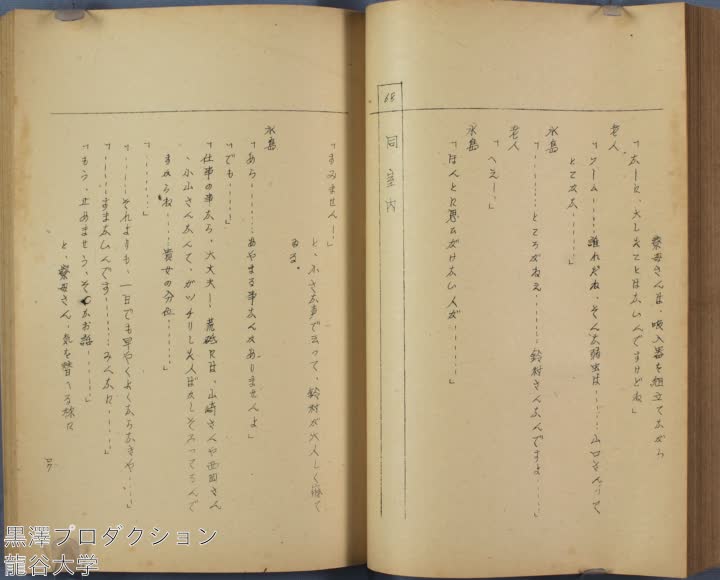 寮母さんは、吸入器を組立てながら
「なーに、大したことはないんですけどね」
老人
「フーム……誰れだね、そんな弱虫は……山口さんって
とこだな……」
永島
「……ところがねえ……鈴村さんなんですよ……」
老人
「へえー」
永島
「ほんとに思いがけない人が……」
68
同 室内
「すみません―」
と、小さな声で云って、鈴村が大人しく寝て
ゐる。
永島
「あら……あやまる事なんかありませんよ」
「でも……」
「仕事の事なら、大丈夫―、荒砥には、山崎さんや西岡さん
、小山さんなんて、ガッチリした人ばかしそろってるんで
すからね……貴女の分位……」
「……」
「……それよりも、一日でも早やくよくならなきや……」
「……すまないんです……みんなに……」
「もう、止めませう、そんなお話……」
と、寮母さん、気を替へる様に
黒澤プロダクション
龍谷大学